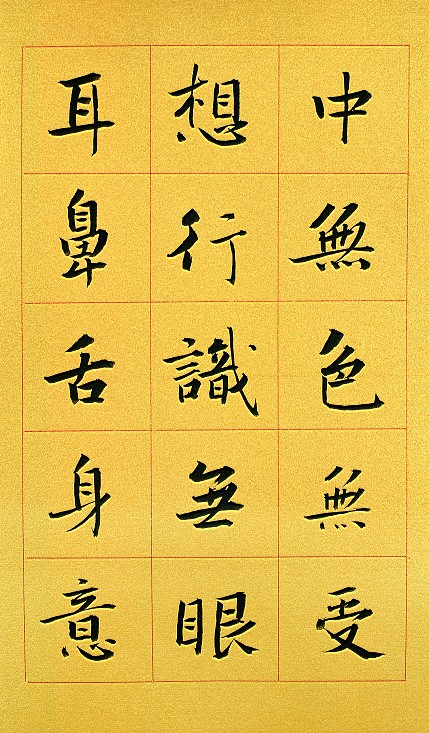 中無色無受
想行識無眼
耳鼻舌身意